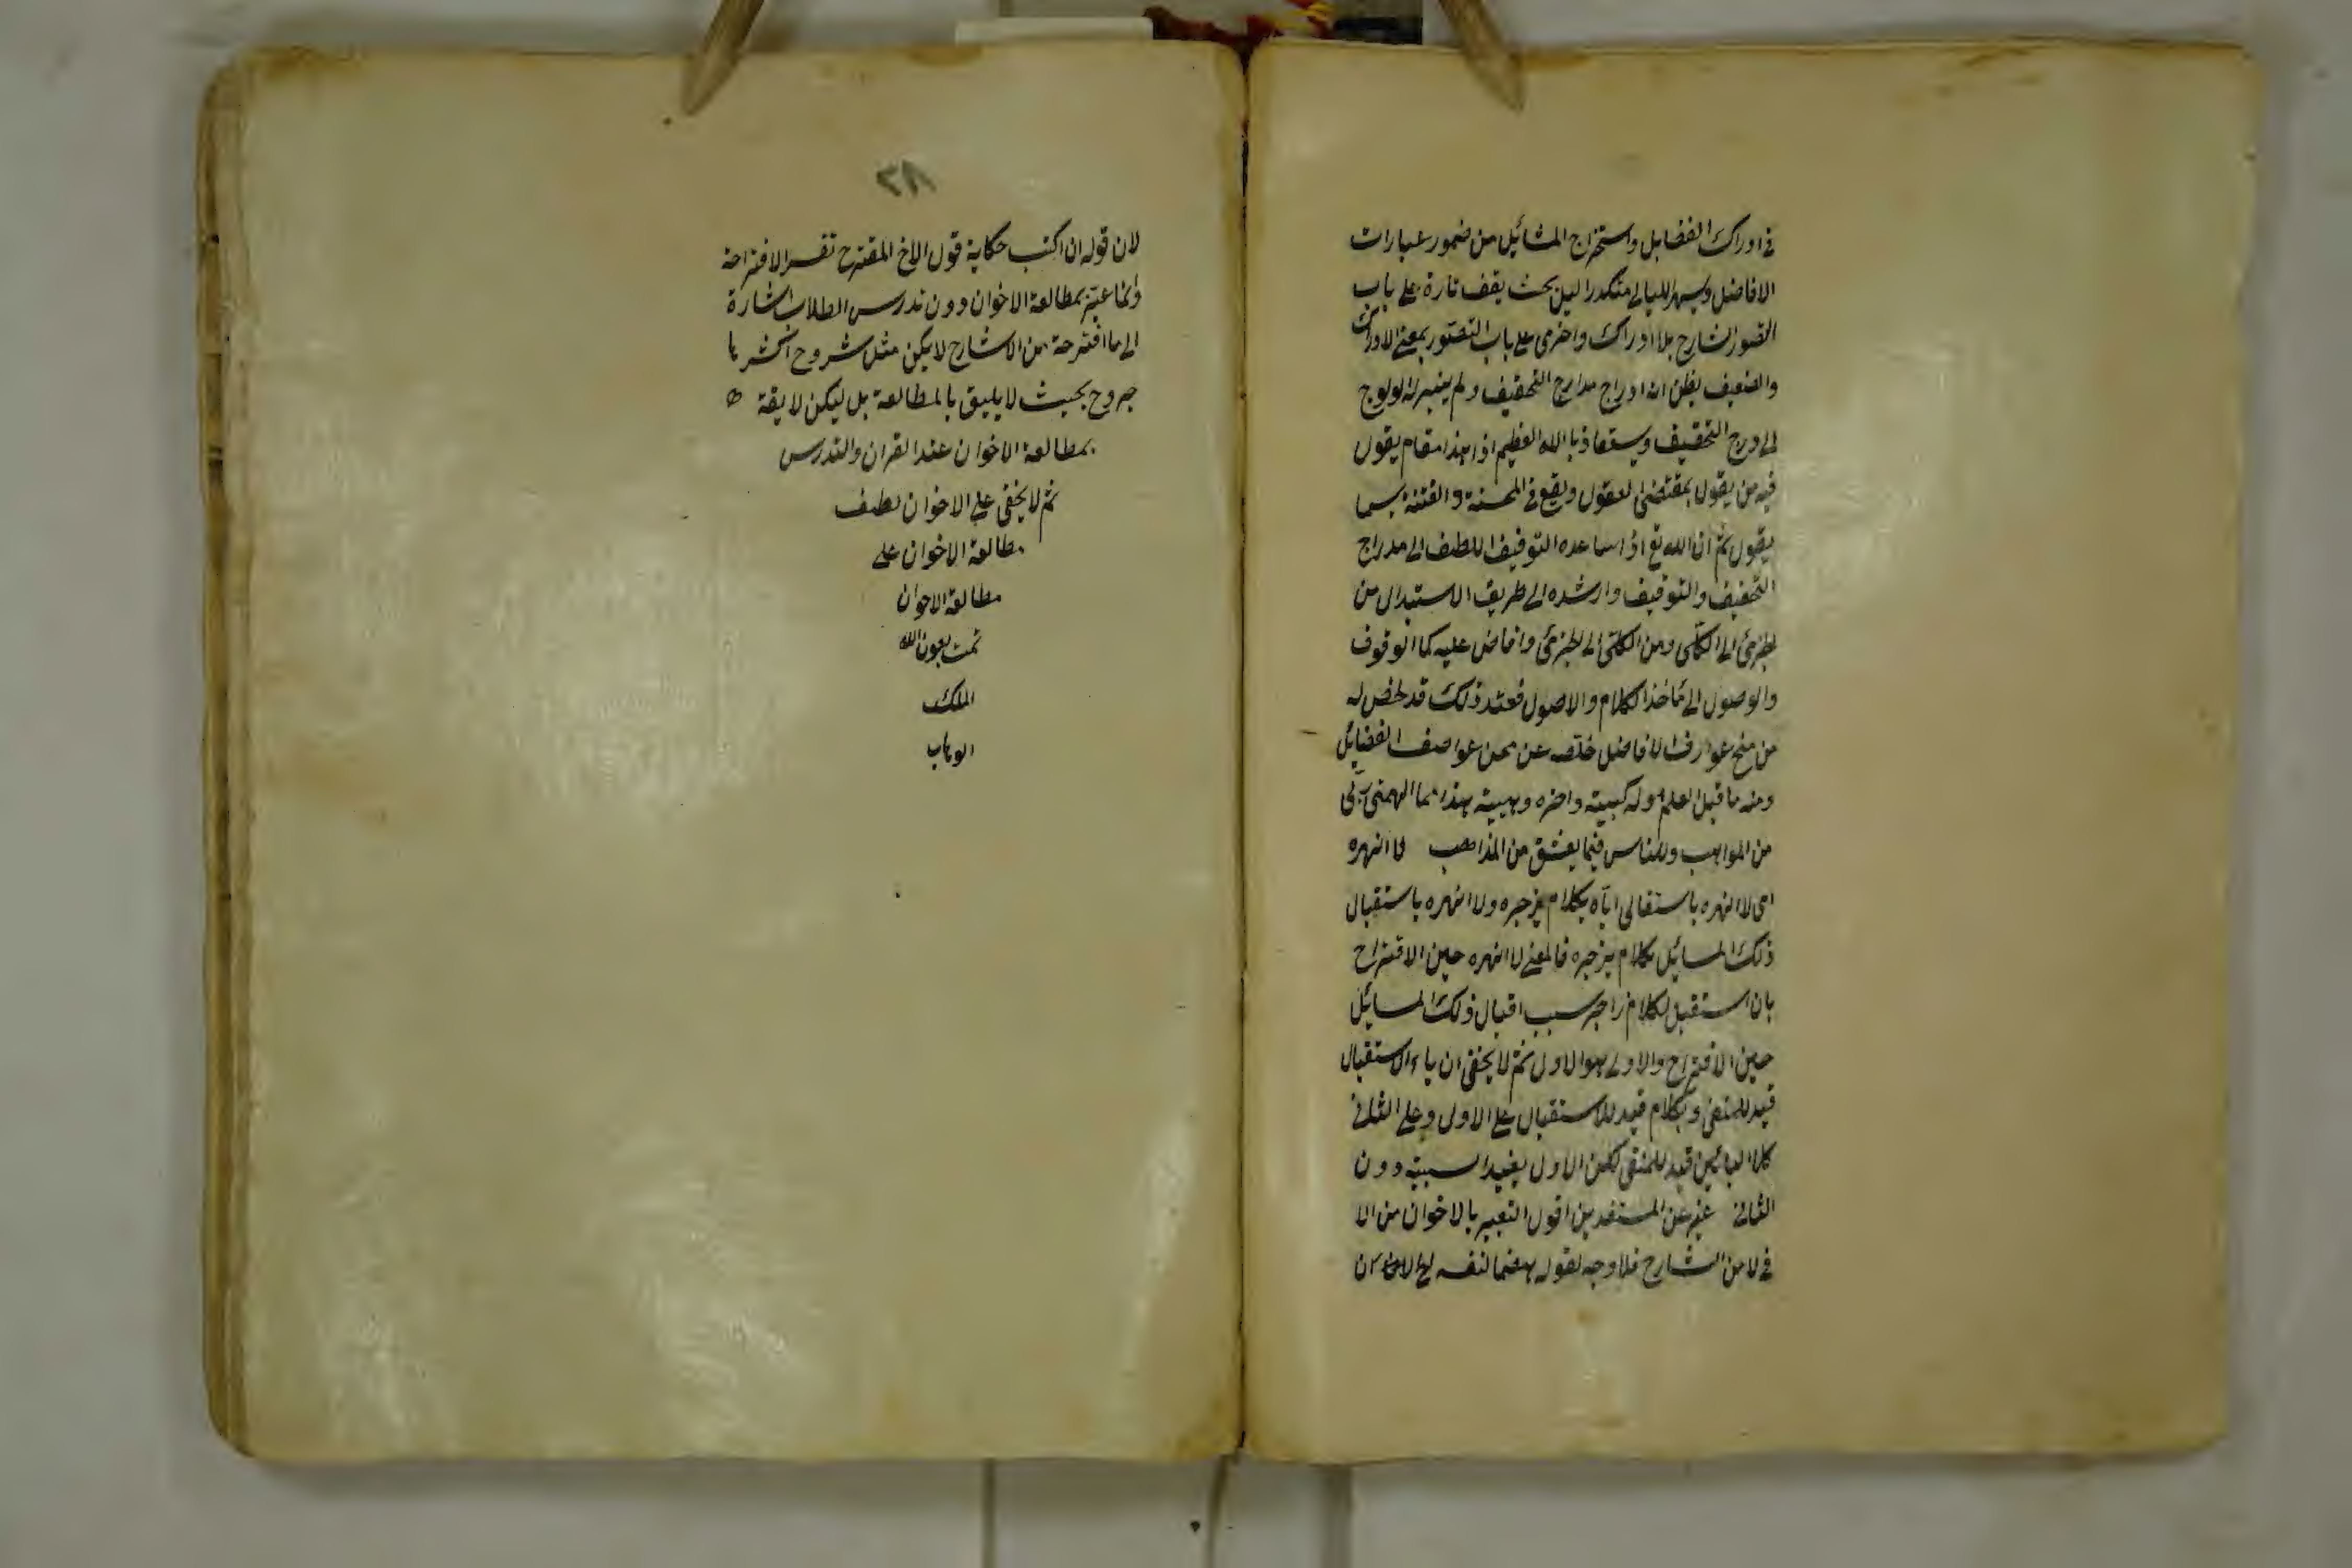 في ادراك الفضايل واستخراج المسائل من ضمور عبارات
الافاضل ويسهر الليالي متكدرا لبحث يقف تارة على باب
التصور الشارح بلا ادراك واخرى على باب التصور بمعنى الادراك
والضعيف يظن انه ادراج مدارج التحقيق ولم يتيسر له الولوج
الى درج التحقيق ويستعاذ بالله العظيم اذا هذا مقام يقول
فيه من يقول بمقتضى العقول ويقع في المحنة والفتنة بما
يقول ثم ان الله تع اذا ساعده التوفيق اللطف الى مدراج
التحقيق والتوفيق وارشده الى طريق الاستدلال من
الجزئى الى الكلى ومن الكلى الى الجزئى وافاض عليه كما الوقوف
والوصول الى مأخذ الكلام والاصول فعند ذلك قد لخص له
من منح عوارف الافاضل خلصه عن محن عواصف الفضائل
ومنه ما قيل العلم اوله كسبية واخره وهبية هذا مما الهمنى ربى
من المواهب وللناس فيما يعشق من المذاهب لا انهره
اى لا انهره باستقبالى اياه بكلام يزجره ولا انهره باستقبال
ذلك المسائل بكلام يزجره فالمعنى لا انهره حين الاقتراح
بان استقبل لكلام زاجر بسبب اقبال ذلك المسائل
حين الاقتراح والاولى هو الاول ثم لا يخفى ان باء الاستقبال
قيد للمنفى وبكلام قيد للاستقبال على الاول وعلى الثانى
كلا البائين قيد للمنفى لكن الاول يفيد السببية دون
الثانى عبر عن المستفيدين اقول التعبير بالاخوان من الا
في لا من الشارح فلا وجه لقوله هضما لنفسه الاخوان
٣٨
لان قوله ان اكتب حكاية قول الاخ المقترح تفسير الاقتراحه
وانما عبر بمطالعة الاخوان دون تدرس الطلاب اشارة
الى ما اقترحه من الشارح لا يكن مثل شروح اكثرها
جروح بحيث لا يليق بالمطالعة بل ليكن لايقة
بمطالعة الاخوان عند القران والتدرس
ثم لا يخفى على الاخوان لطف
مطالعة الاخوان على
مطالعة الاخوان
تمت بعون الله
الملك
الوهاب